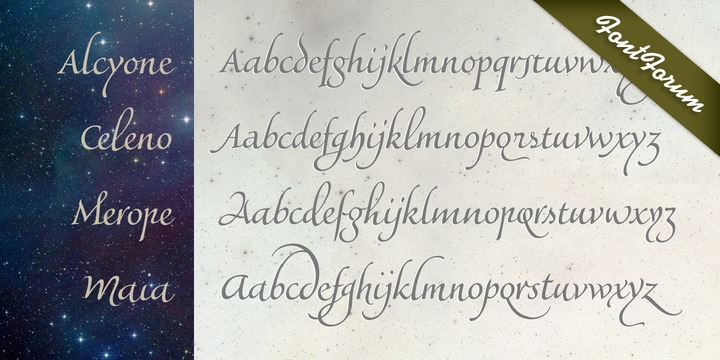 Alcyone
Aabcdefghijklmnopqrstuvwxyz
Celeno
Aabcdefghijklmnopqrstuvwxyz
Merope
Aabcdefghijklmnopqrstuvwxyz
Maia
Aabcdefghijklmnopqrstuvwxyz
FontForum